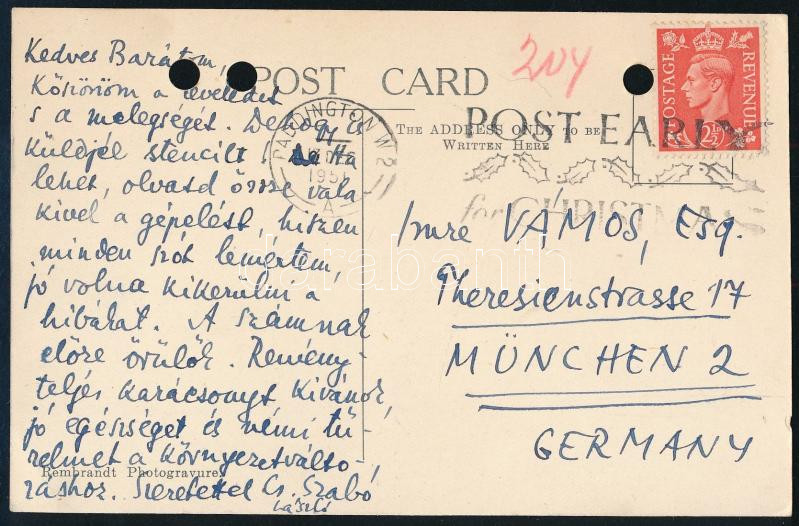 Kedves Barátom,
Köszönöm a leveledet
s a melegségét. De hogy is
küldjél stencilt
lehet, olvasd össze vala
kivel a gépelést, hiszen
minden szót lemértem,
jó volna kikerülni a
hibákat. A számnak
előre örülök. Remény-
teljes karácsonyt kívánok,
jó egészséget és némi tü-
relmet a környezetválto-
záshoz. Szeretettel Cs. Szabó
László
204
POST CARD
THE ADDRESS ONLY TO BE
WRITTEN HERE
PADDINGTON W.2
1951
A
POST EARLY
for CHRISTMAS
POSTAGE
REVENUE
2½D
Imre VÁMOS, Esq.
Theresienstrasse 17
MÜNCHEN 2
GERMANY
Rembrandt Photogravure.
darabanth